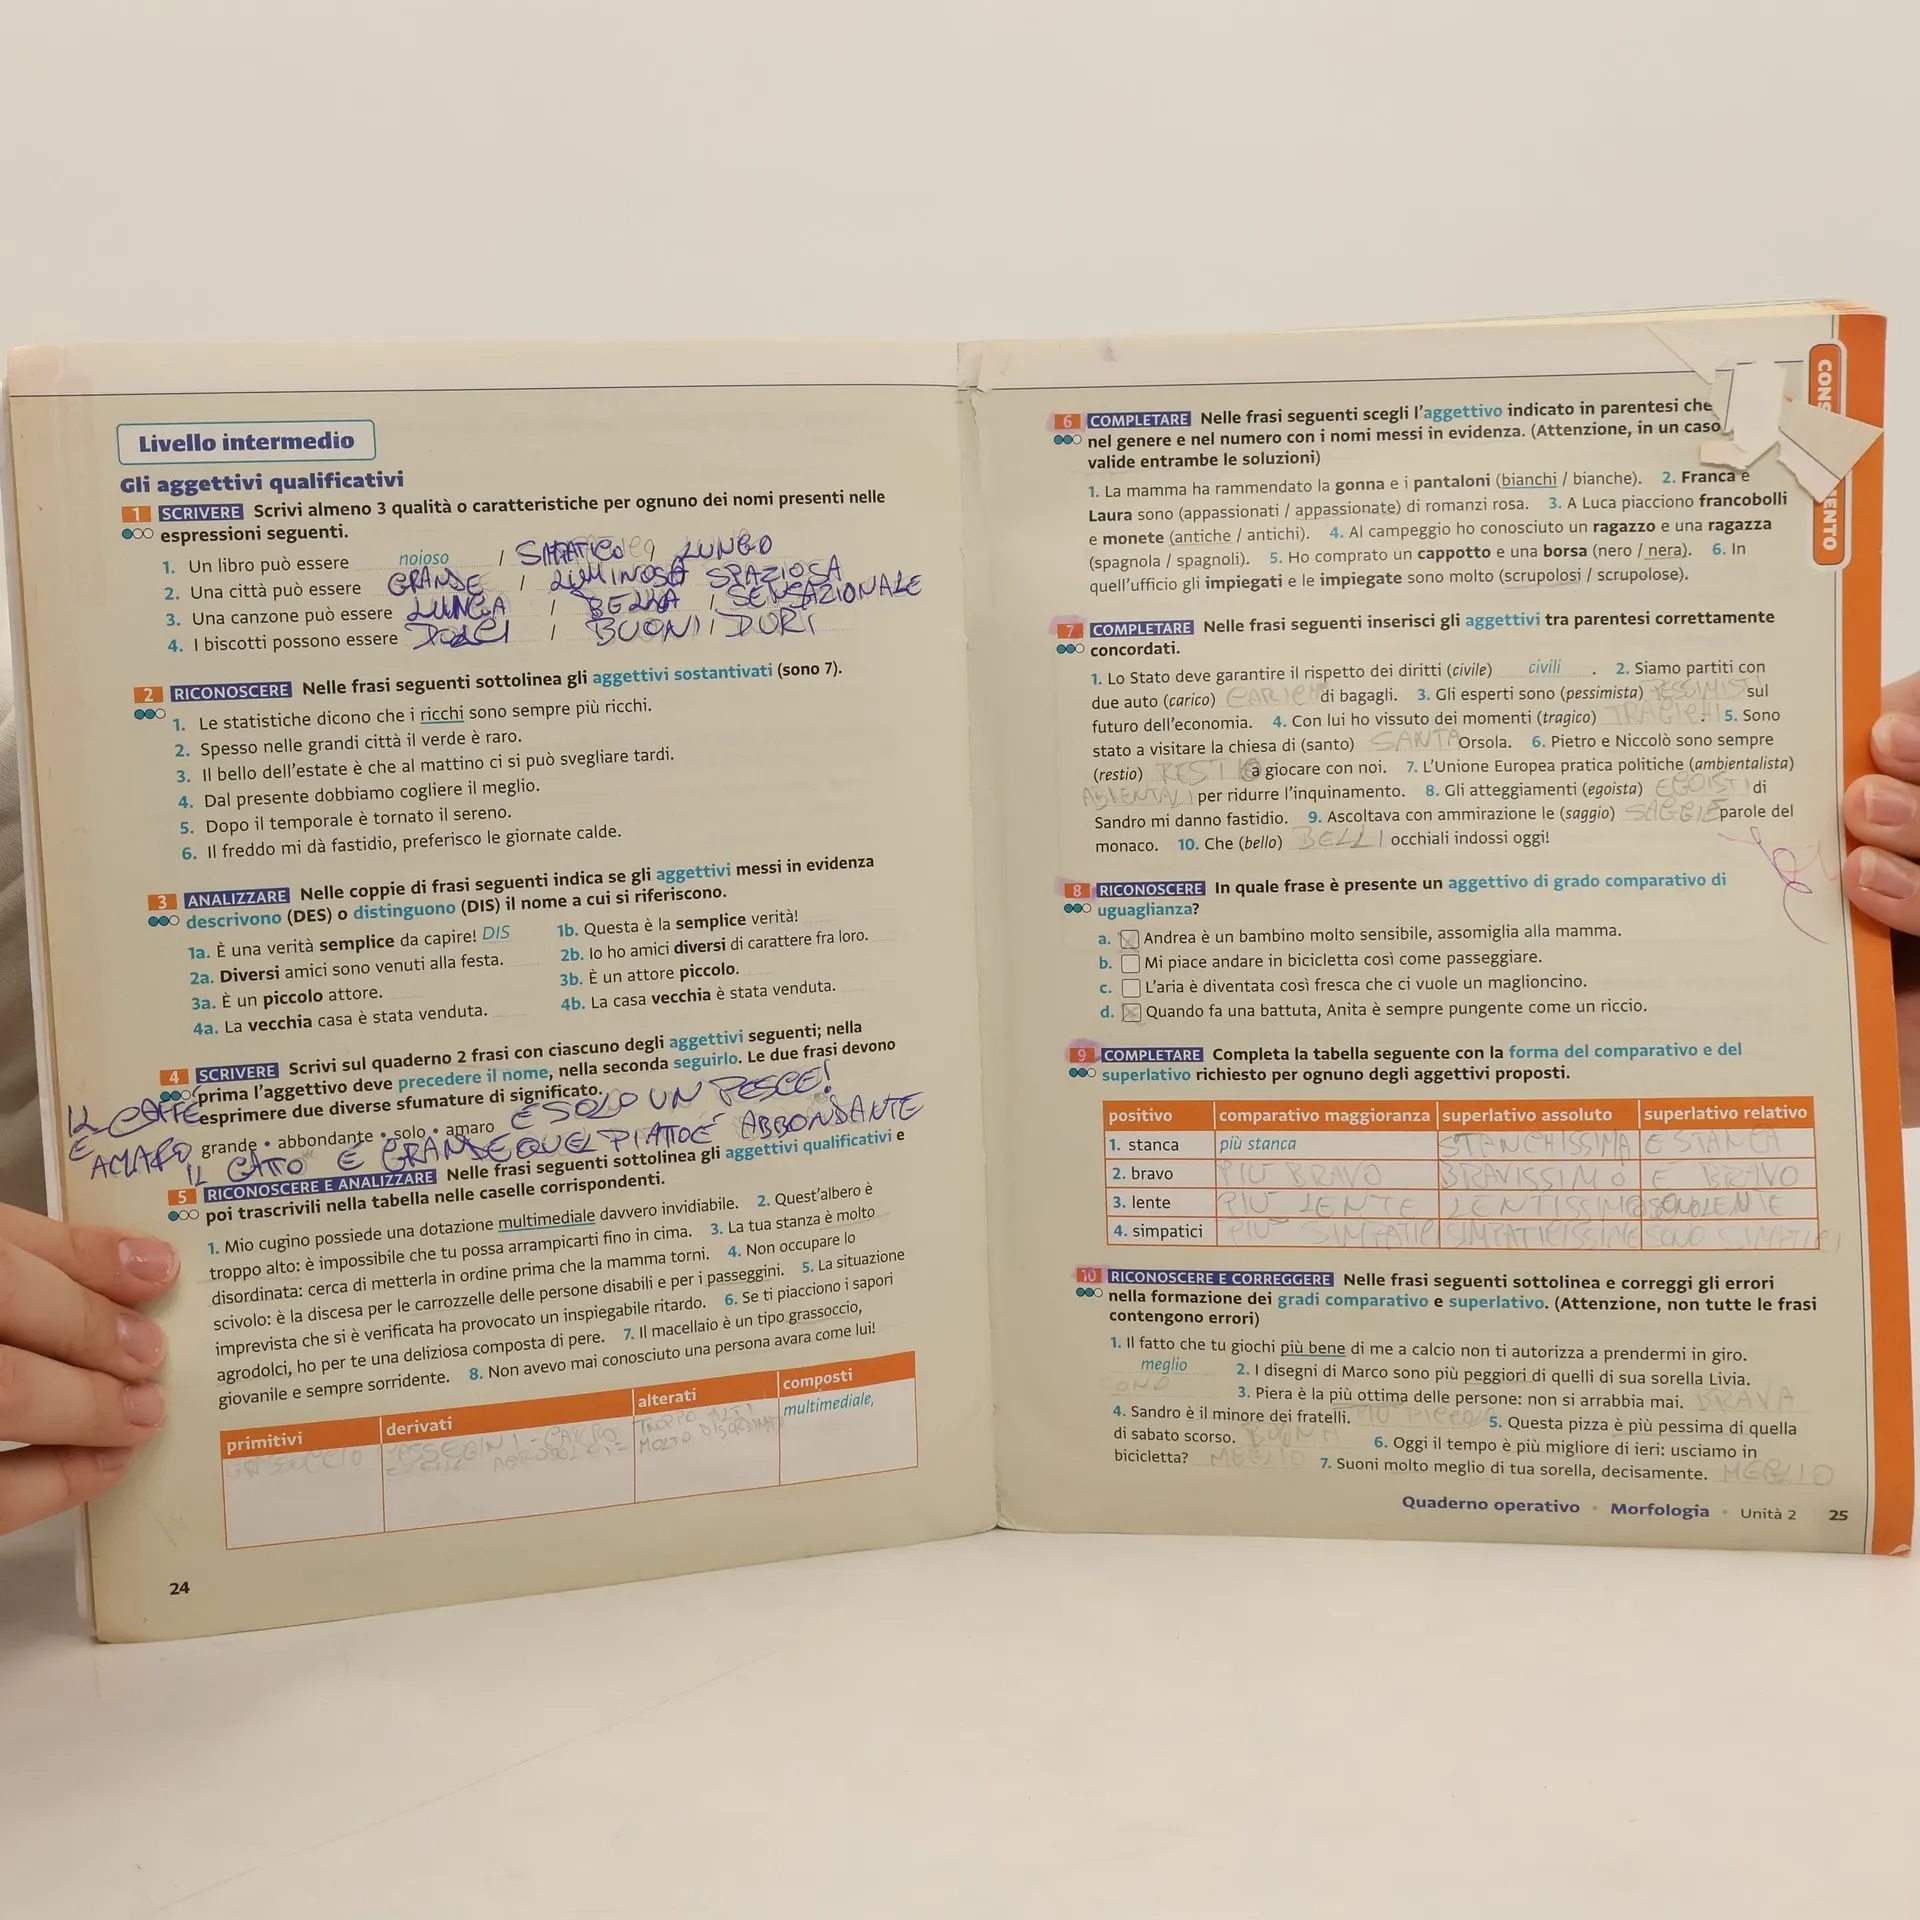 Livello intermedio
Gli aggettivi qualificativi
1 SCRIVERE Scrivi almeno 3 qualità o caratteristiche per ognuno dei nomi presenti nelle
espressioni seguenti.
1. Un libro può essere noioso / SIMPATICO / LUNGO
2. Una città può essere GRANDE / LUMINOSA SPAZIOSA
3. Una canzone può essere LUNGA / BELLA / SENSAZIONALE
4. I biscotti possono essere DOLCI / BUONI / DURI
2 RICONOSCERE Nelle frasi seguenti sottolinea gli aggettivi sostantivati (sono 7).
1. Le statistiche dicono che i ricchi sono sempre più ricchi.
2. Spesso nelle grandi città il verde è raro.
3. Il bello dell'estate è che al mattino ci si può svegliare tardi.
4. Dal presente dobbiamo cogliere il meglio.
5. Dopo il temporale è tornato il sereno.
6. Il freddo mi dà fastidio, preferisco le giornate calde.
3 ANALIZZARE Nelle coppie di frasi seguenti indica se gli aggettivi messi in evidenza
descrivono (DES) o distinguono (DIS) il nome a cui si riferiscono.
1a. È una verità semplice da capire! DIS 1b. Questa è la semplice verità!
2a. Diversi amici sono venuti alla festa. 2b. Io ho amici diversi di carattere fra loro.
3a. È un piccolo attore. 3b. È un attore piccolo.
4a. La vecchia casa è stata venduta. 4b. La casa vecchia è stata venduta.
4 SCRIVERE Scrivi sul quaderno 2 frasi con ciascuno degli aggettivi seguenti; nella
prima l'aggettivo deve precedere il nome, nella seconda seguirlo. Le due frasi devono
esprimere due diverse sfumature di significato.
IL CAFFÈ
È SOLO UN PESCE!
grande • abbondante • solo • amaro
È AMARO IL GATO È GRANDE QUEL PIATTO È ABBONDANTE
5 RICONOSCERE E ANALIZZARE Nelle frasi seguenti sottolinea gli aggettivi qualificativi e
poi trascrivili nella tabella nelle caselle corrispondenti.
1. Mio cugino possiede una dotazione multimediale davvero invidiabile. 2. Quest'albero è
troppo alto: è impossibile che tu possa arrampicarti fino in cima. 3. La tua stanza è molto
disordinata: cerca di metterla in ordine prima che la mamma torni. 4. Non occupare lo
scivolo: è la discesa per le carrozzelle delle persone disabili e per i passeggini. 5. La situazione
imprevista che si è verificata ha provocato un inspiegabile ritardo. 6. Se ti piacciono i sapori
agrodolci, ho per te una deliziosa composta di pere. 7. Il macellaio è un tipo grassoccio,
giovanile e sempre sorridente. 8. Non avevo mai conosciuto una persona avara come lui!
primitivi derivati alterati composti
GRASSOCCIO TROPPO ALTI multimediale,
MOLTO DISORDINATA
24
CONS
MENTO
6 COMPLETARE Nelle frasi seguenti scegli l'aggettivo indicato in parentesi che
nel genere e nel numero con i nomi messi in evidenza. (Attenzione, in un caso
valide entrambe le soluzioni)
1. La mamma ha rammendato la gonna e i pantaloni (bianchi / bianche). 2. Franca e
Laura sono (appassionati / appassionate) di romanzi rosa. 3. A Luca piacciono francobolli
e monete (antiche / antichi). 4. Al campeggio ho conosciuto un ragazzo e una ragazza
(spagnola / spagnoli). 5. Ho comprato un cappotto e una borsa (nero / nera). 6. In
quell'ufficio gli impiegati e le impiegate sono molto (scrupolosi / scrupolose).
7 COMPLETARE Nelle frasi seguenti inserisci gli aggettivi tra parentesi correttamente
concordati.
1. Lo Stato deve garantire il rispetto dei diritti (civile) civili . 2. Siamo partiti con
due auto (carico) CARICH di bagagli. 3. Gli esperti sono (pessimista) PESSIMISTI sul
futuro dell'economia. 4. Con lui ho vissuto dei momenti (tragico) TRAGICHI . 5. Sono
stato a visitare la chiesa di (santo) SANTA Orsola. 6. Pietro e Niccolò sono sempre
(restio) RESTI a giocare con noi. 7. L'Unione Europea pratica politiche (ambientalista)
ABIENTALI per ridurre l'inquinamento. 8. Gli atteggiamenti (egoista) EGOISTI di
Sandro mi danno fastidio. 9. Ascoltava con ammirazione le (saggio) SAGGIE parole del
monaco. 10. Che (bello) BELLI occhiali indossi oggi!
8 RICONOSCERE In quale frase è presente un aggettivo di grado comparativo di
uguaglianza?
a. Andrea è un bambino molto sensibile, assomiglia alla mamma.
b. Mi piace andare in bicicletta così come passeggiare.
c. L'aria è diventata così fresca che ci vuole un maglioncino.
d. Quando fa una battuta, Anita è sempre pungente come un riccio.
9 COMPLETARE Completa la tabella seguente con la forma del comparativo e del
superlativo richiesto per ognuno degli aggettivi proposti.
positivo comparativo maggioranza superlativo assoluto superlativo relativo
1. stanca più stanca STANCHISSIMA E STANCA
2. bravo PIÙ BRAVO BRAVISSIMO E BRAVO
3. lente PIÙ LENTE LENTISSIMO SONO LENTE
4. simpatici PIÙ SIMPATIC SIMPATICISSIME SONO SIMPTICI
10 RICONOSCERE E CORREGGERE Nelle frasi seguenti sottolinea e correggi gli errori
nella formazione dei gradi comparativo e superlativo. (Attenzione, non tutte le frasi
contengono errori)
1. Il fatto che tu giochi più bene di me a calcio non ti autorizza a prendermi in giro.
meglio 2. I disegni di Marco sono più peggiori di quelli di sua sorella Livia.
SONO 3. Piera è la più ottima delle persone: non si arrabbia mai. BRAVA
4. Sandro è il minore dei fratelli. PIÙ PICCOLO 5. Questa pizza è più pessima di quella
di sabato scorso. BUONA 6. Oggi il tempo è più migliore di ieri: usciamo in
bicicletta? MEGLIO 7. Suoni molto meglio di tua sorella, decisamente. MEGLIO
Quaderno operativo • Morfologia • Unità 2 25